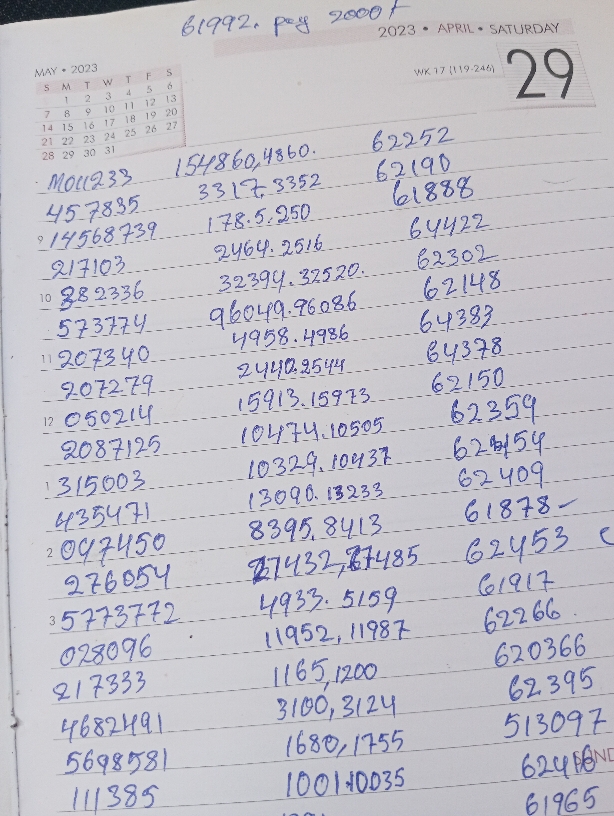 61992. pay 2000/
2023 • APRIL • SATURDAY
MAY • 2023
WK 17 (119-246)
29
S M T W T F S
1 2 3 4 5 6
7 8 9 10 11 12 13
14 15 16 17 18 19 20
21 22 23 24 25 26 27
28 29 30 31
154860,4860. 62252
457835 3317,3352 62190
9 14568739 178.5.250 61888
217103 2464.2516 64422
10 382336 32394.32520. 62302
573774 96049.96086 62148
11 207340 4958.4986 64383
207279 2440.2544 64378
12 050214 15913.15973 62150
2087125 10474.10505 62359
1 315003 10329.10437
435471 13090.13233 62409
2 047450 8395,8413 61878-
276054 27432,27485 62453
3 5773772 4933.5159 61917
028096 11952,11987 62266
217333 1165,1200 620366
4682491 3100,3124 62395
5698581 1680,1755 513097
111385 61965